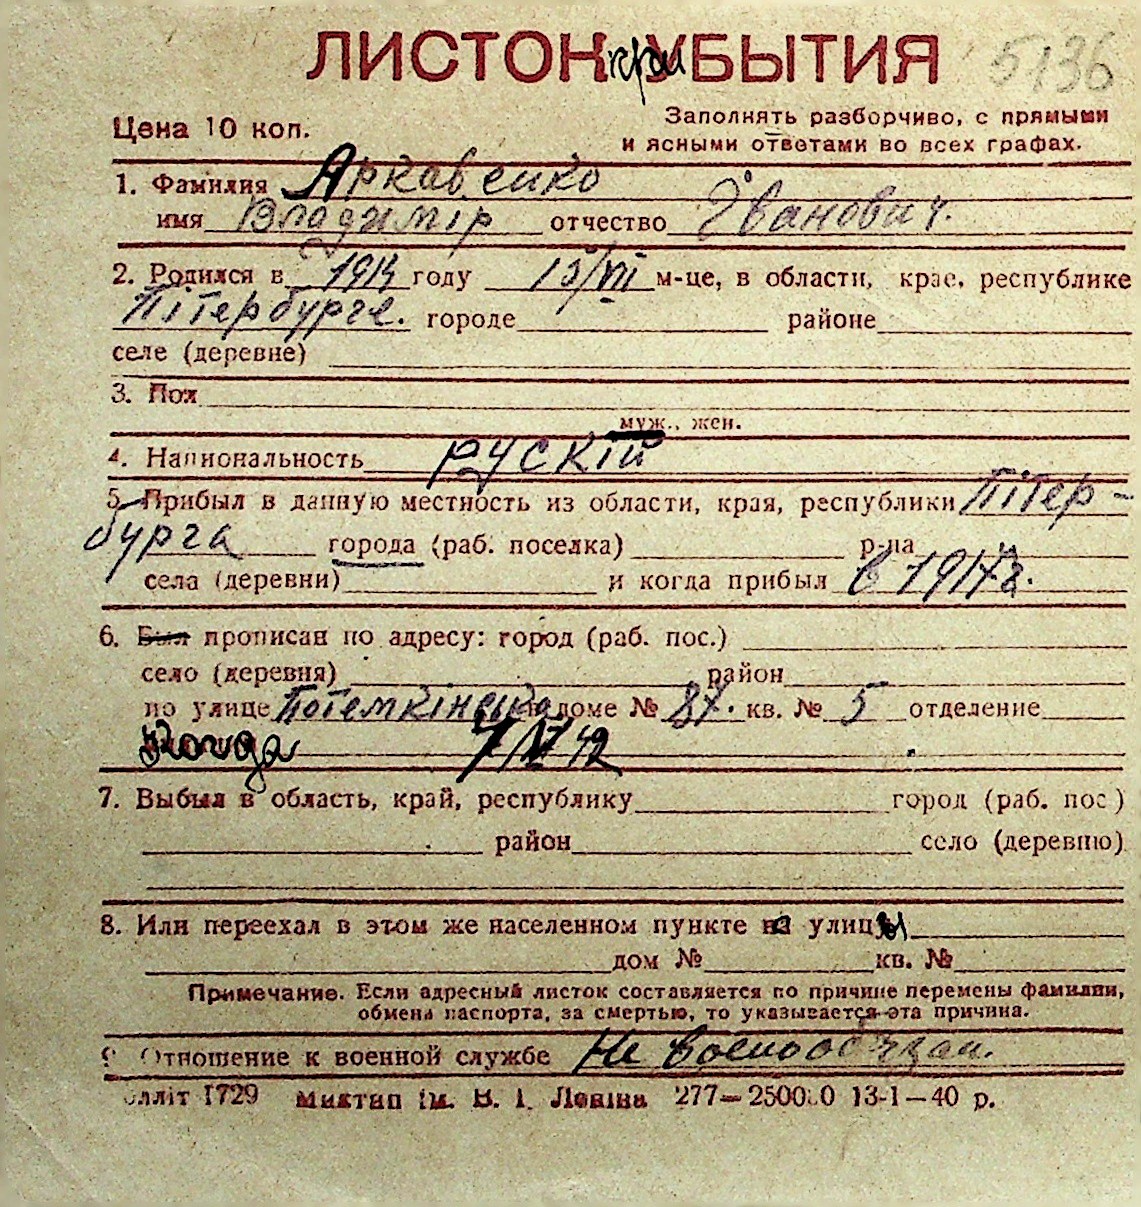 ЛИСТОК при УБЫТИЯ 5136
Цена 10 коп. Заполнять разборчиво, с прямыми
и ясными ответами во всех графах.
1. Фамилия Аркавенко
имя Владимір отчество Іванович.
2. Родился в 1914 году 15/VII м-це, в области, крае, республике
Пітербурге. городе районе
селе (деревне)
3. Пол
муж., жен.
4. Национальность рускій
5. Прибыл в данную местность из области, края, республики Пітер-
бурга города (раб. поселка) р-на
села (деревни) и когда прибыл в 1917г.
6. Был прописан по адресу: город (раб. пос.)
село (деревня) район
по улице Потемкінська доме № 87. кв. № 5 отделение
Когда 7/IV 42
7. Выбыл в область, край, республику город (раб. пос)
район село (деревню)
8. Или переехал в этом же населенном пункте на улицы
дом № кв. №
Примечание. Если адресный листок составляется по причине перемены фамилии,
обмена паспорта, за смертью, то указывается эта причина.
9 Отношение к военной службе Не военообязан.
олліт 1729 Миктип ім. В. І. Леніна 277—2500 0 13-1—40 р.